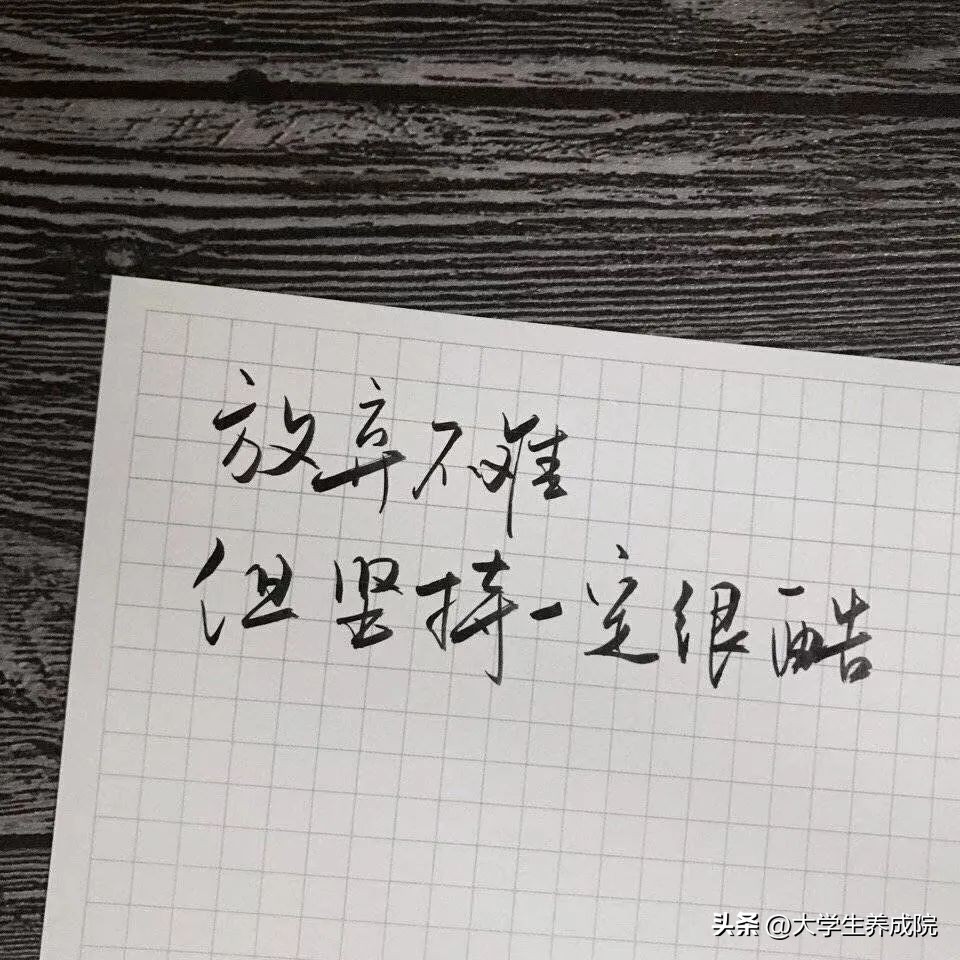 放弃不难
但坚持一定很酷
头条 @大学生养成院